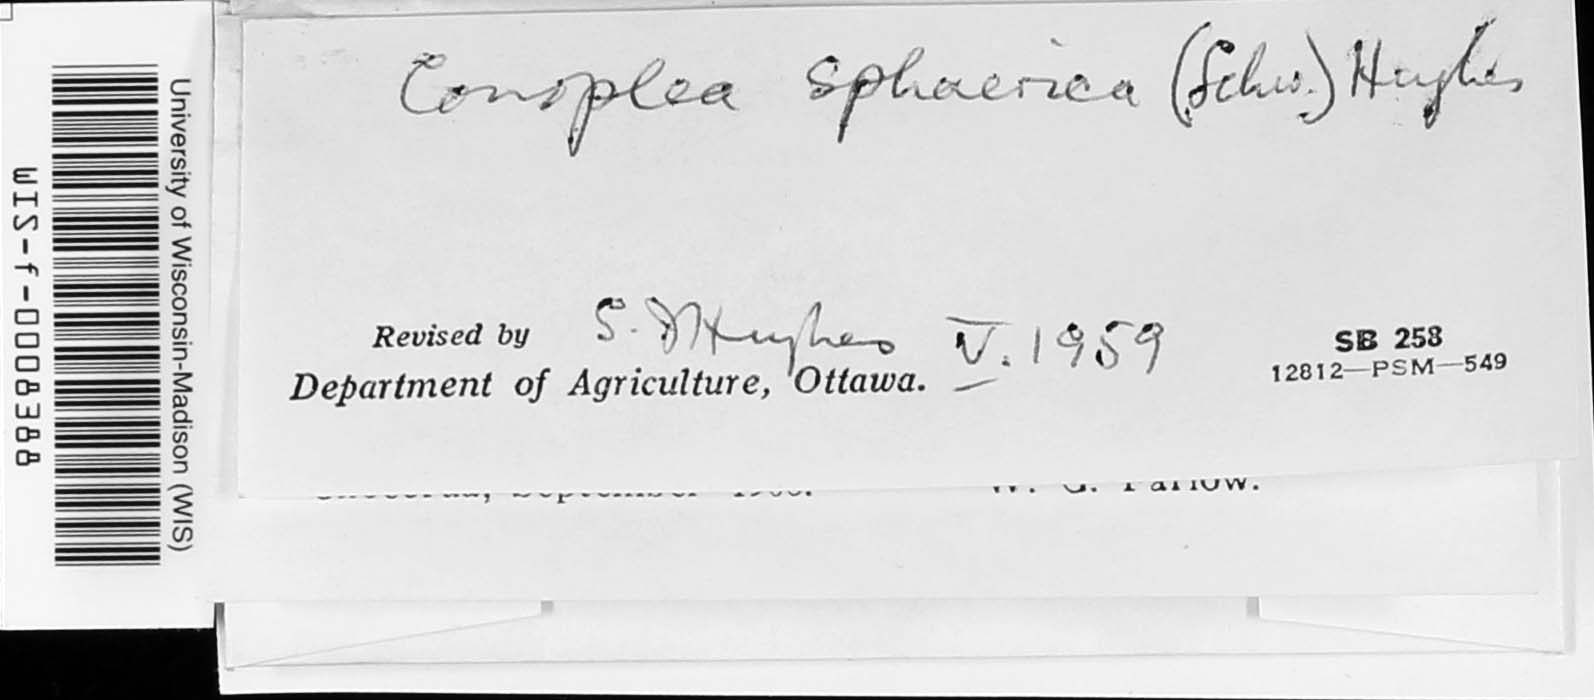 Conoplea sphaerica (Schw.) Hughes
Revised by S. J. Hughes V. 1959
Department of Agriculture, Ottawa.
SB 258
12812—PSM—549
September
W. G. Farlow.
University of Wisconsin-Madison (WIS)
WIS-f-0008388